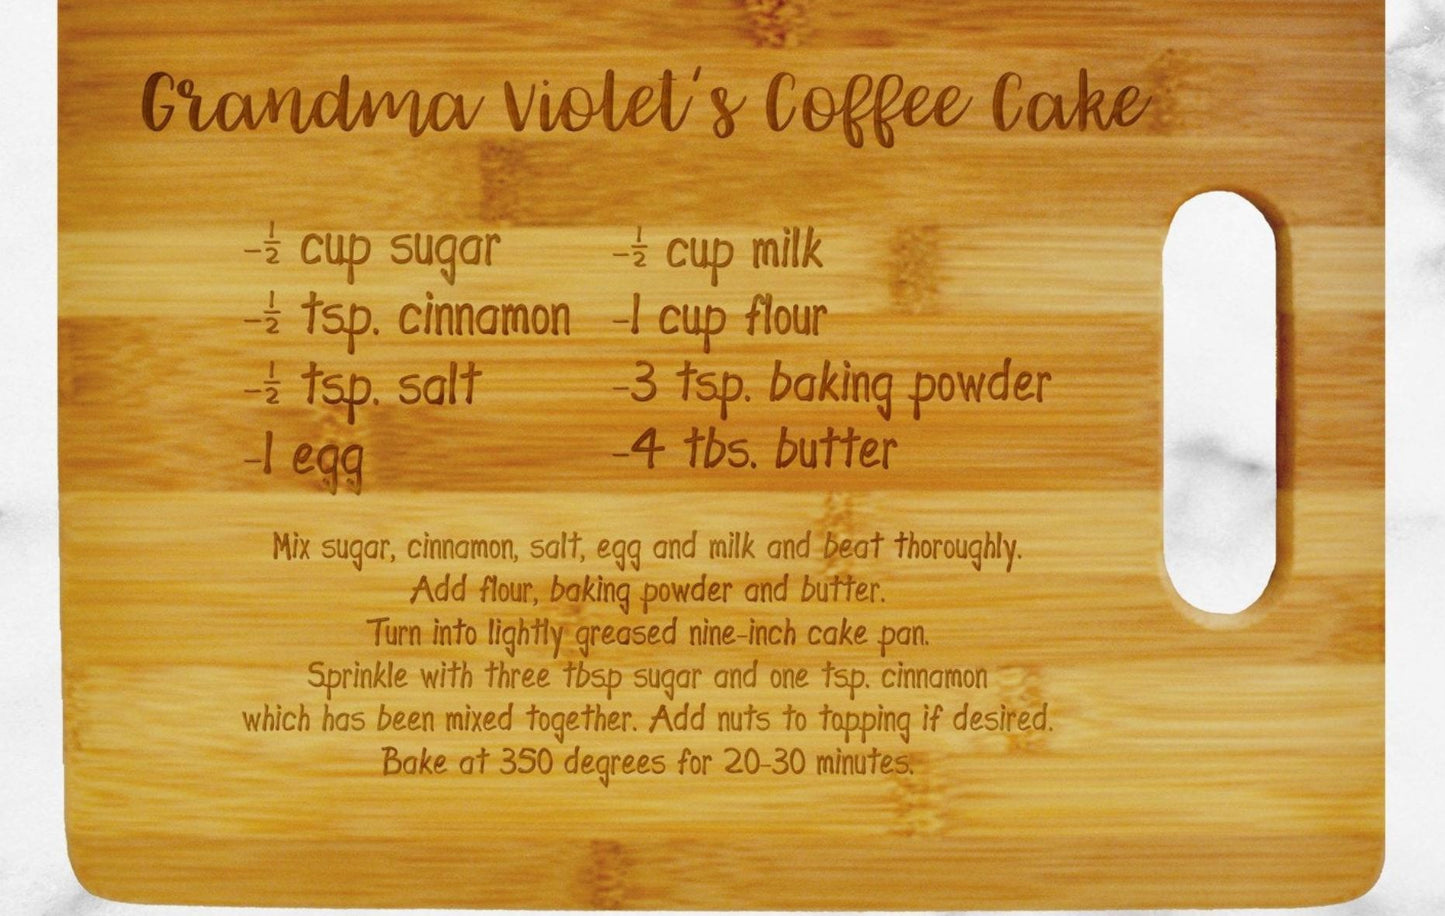 Grandma Violet's Coffee Cake
-½ cup sugar
-½ tsp. cinnamon
-½ tsp. salt
-1 egg
-½ cup milk
-1 cup flour
-3 tsp. baking powder
-4 tbs. butter
Mix sugar, cinnamon, salt, egg and milk and beat thoroughly.
Add flour, baking powder and butter.
Turn into lightly greased nine-inch cake pan.
Sprinkle with three tbsp sugar and one tsp. cinnamon
which has been mixed together. Add nuts to topping if desired.
Bake at 350 degrees for 20-30 minutes.